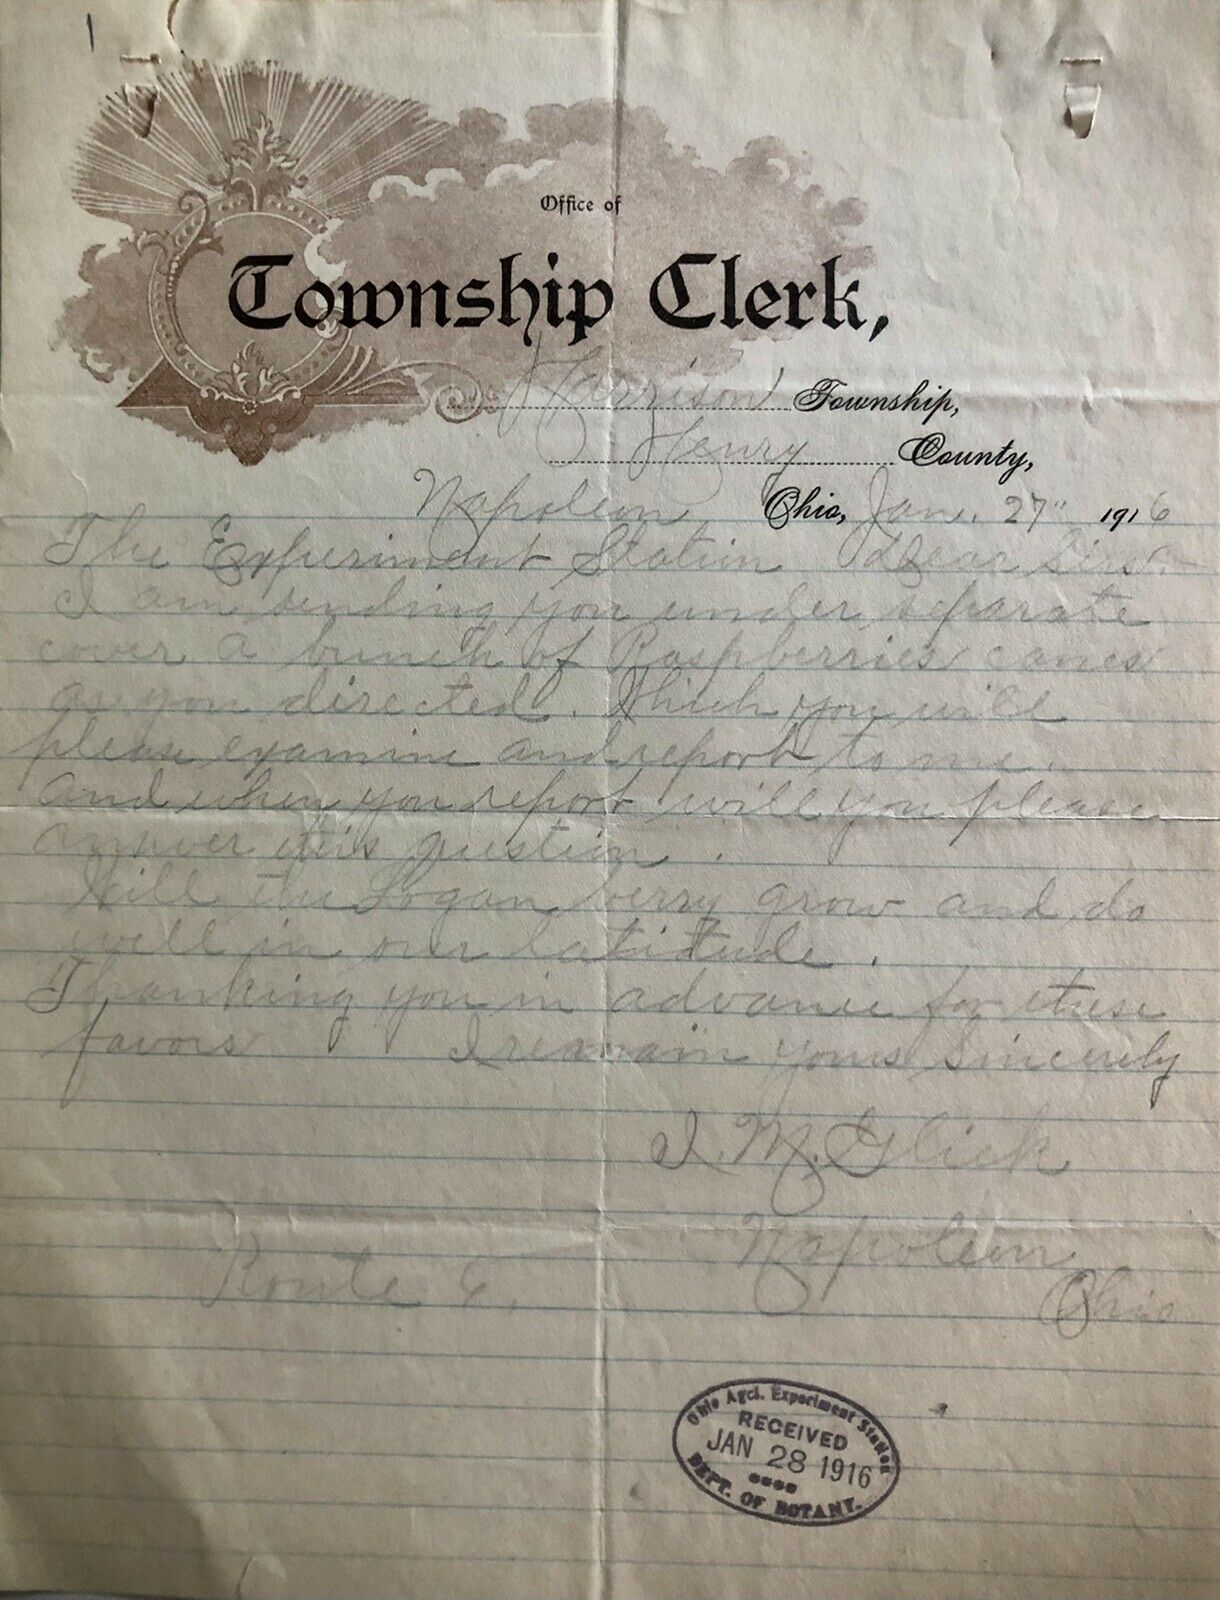 Office of
Township Clerk,
Harrison Township,
Henry County,
Napoleon Ohio, Jan. 27" 1916
The Experiment Station Dear Sirs:-
I am sending you under seperate
cover a bunch of Raspberries canes
as you directed. Which you will
please examine and report to me.
and when you report will you please
answer this question.
Will the Logan berry grow and do
well in our latitude.
Thanking you in advance for these
favors I remain yours Sincerely
I. M. Glick
Napoleon
Route 6. Ohio
Ohio Agcl. Experiment Station
RECEIVED
JAN 28 1916
DEPT. OF BOTANY.